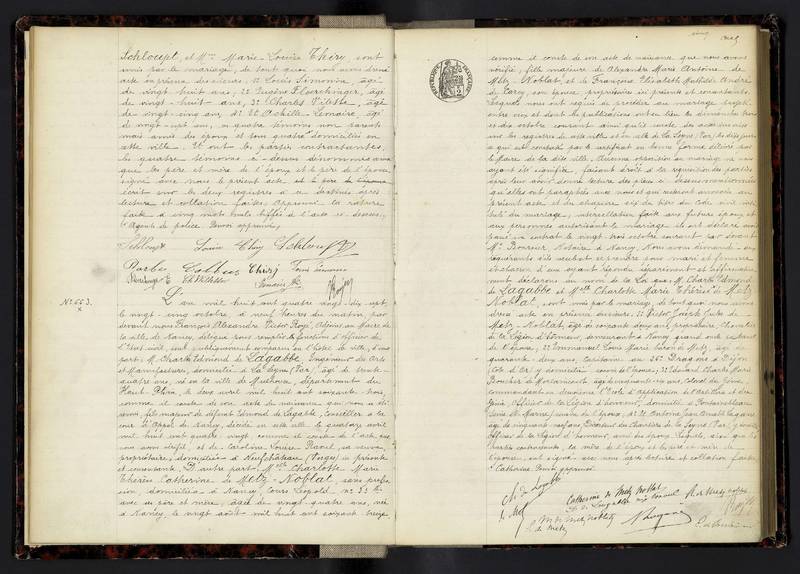 Schloupt, et Mme Marie Louise Thiry, sont
unis par le mariage, de tout quoi nous avons dressé
acte en présence des sieurs, 1° Louis Simonin, âgé
de vingt-huit ans; 2° Eugène
de vingt-huit ans, 3° Charles Villette, âgé
de vingt-cinq ans, 4° Achille Lemaire, âgé
de vingt-sept ans, ces quatre témoins non parents
mais amis des époux et tous quatre domiciliés en
cette ville. Et ont les parties contractantes,
les quatre témoins ci-dessus dénommés ainsi
que les père et mère de l'époux et le père de l'épouse
signé avec nous le présent acte
écrit sur les deux registres à ce destinés après
lecture et collation faites. Approuvé la rature
faite à cinq mots nuls biffés à l'acte ci-dessus.
Agent de police. Renvoi approuvé.
Schloupt Louise Thiry Schloupt
Barbe Colbus Thiry
Ch Villette Lemaire
N° 663.
L'an mil huit cent quatre vingt-dix sept,
le vingt-cinq octobre, à neuf heures du matin, par
devant nous François Alexandre Victor Adjoint au Maire de
la ville de Nancy, délégué pour remplir les fonctions d'officier de
l'État civil, sont publiquement comparus en l'hôtel de ville, d'une
part, M. Charles Edmond de Lagabbe, Ingénieur des Arts
et Manufactures, domicilié à La Seyne (Var), âgé de trente-
quatre ans, né en la ville de Mulhouse, département du
Haut-Rhin, le deux avril mil huit cent soixante-trois,
comme il conste de son acte de naissance que nous avons
vérifié, fils majeur de défunt Edmond de Lagabbe, Conseiller à la
cour d'Appel de Nancy, décédé en cette ville le quatorze avril
mil huit cent quatre vingt comme il conste de l'acte que
nous avons vérifié, et de Caroline Louise Raoul, sa veuve,
propriétaire, domiciliée à Neufchâteau (Vosges) ici présente
et consentante. D'autre part, Melle Charlotte Marie
Thérèse Catherine de Metz-Noblat, sans profes-
sion, domiciliée à Nancy, Cours Léopold n°
avec ses père et mère, âgée de vingt-quatre ans, née
à Nancy, le vingt août mil huit cent soixante-treize,
comme il conste de son acte de naissance que nous avons
vérifié, fille majeure de Alexandre Marie Antoine de
Metz-Noblat, et de Françoise Elisabeth Mathilde André
son épouse, propriétaires ici présents et consentants.
Lesquels nous ont requis de procéder au mariage projeté
entre eux et dont les publications ont eu lieu les dimanches trois
et dix octobre courant, ainsi qu'il conste des documents
sur les registres de cette ville et en celle de La Seyne (Var),
ce qui est constaté par le certificat en bonne forme délivré par
le Maire de la dite ville. Aucune opposition au mariage ne nous
ayant été signifiée, faisant droit à la réquisition des parties
après leur avoir donné lecture des pièces ci-dessus mentionnées
qu'elles ont paraphées avec nous et qui resteront annexées au
présent acte et du chapitre six du titre du Code civil inti-
tulé du mariage, interpellation faite aux futurs époux et
aux personnes autorisant le mariage, ils ont déclaré avoir
passé un contrat le vingt-trois octobre courant par devant
Me Notaire à Nancy. Nous avons demandé aux
requérants s'ils veulent se prendre pour mari et femme
et chacun d'eux ayant répondu séparément et affirmativement
déclarons au nom de la Loi que M. Charles Edmond
de Lagabbe et Melle Charlotte Marie Thérèse C. de Metz
Noblat, sont unis par le mariage, de tout quoi nous avons
dressé acte en présence des sieurs, 1° Victor Joseph Jules de
Metz-Noblat, âgé de soixante-deux ans, propriétaire, Chevalier
de la Légion d'Honneur, demeurant à Nancy
de l'épouse, 2° Emmanuel Louis Marie de Metz, âgé de
quarante-deux ans, Capitaine au 26e Dragons à Dijon
(Côte d'Or) y domicilié, cousin de l'épouse, 3° Édouard Charles Marie
Boucher de Morlaincourt, âgé de cinquante ans, Colonel du Génie,
commandant en deuxième l'École d'application de l'artillerie et du
Génie, Officier de la Légion d'honneur, domicilié à Fontainebleau,
Seine et Marne, oncle de l'épouse; 4° Antoine Jean Amable Lagane
âgé de cinquante-neuf ans, Directeur du chantier de La Seyne (Var), y domicilié
Officier de la Légion d'honneur, ami des époux. Lesquels, ainsi que les
parties contractantes, la mère de l'époux et les père et mère de
l'épouse, ont signé avec nous après lecture et collation faites.
Catherine. Renvoi approuvé.
Ch de Lagabbe
Catherine de Metz Noblat
de Lagabbe née Raoul
A. de Metz Noblat
M. de Metz Noblat
E. de Metz
Lagane
RÉPUBLIQUE FRANÇAISE